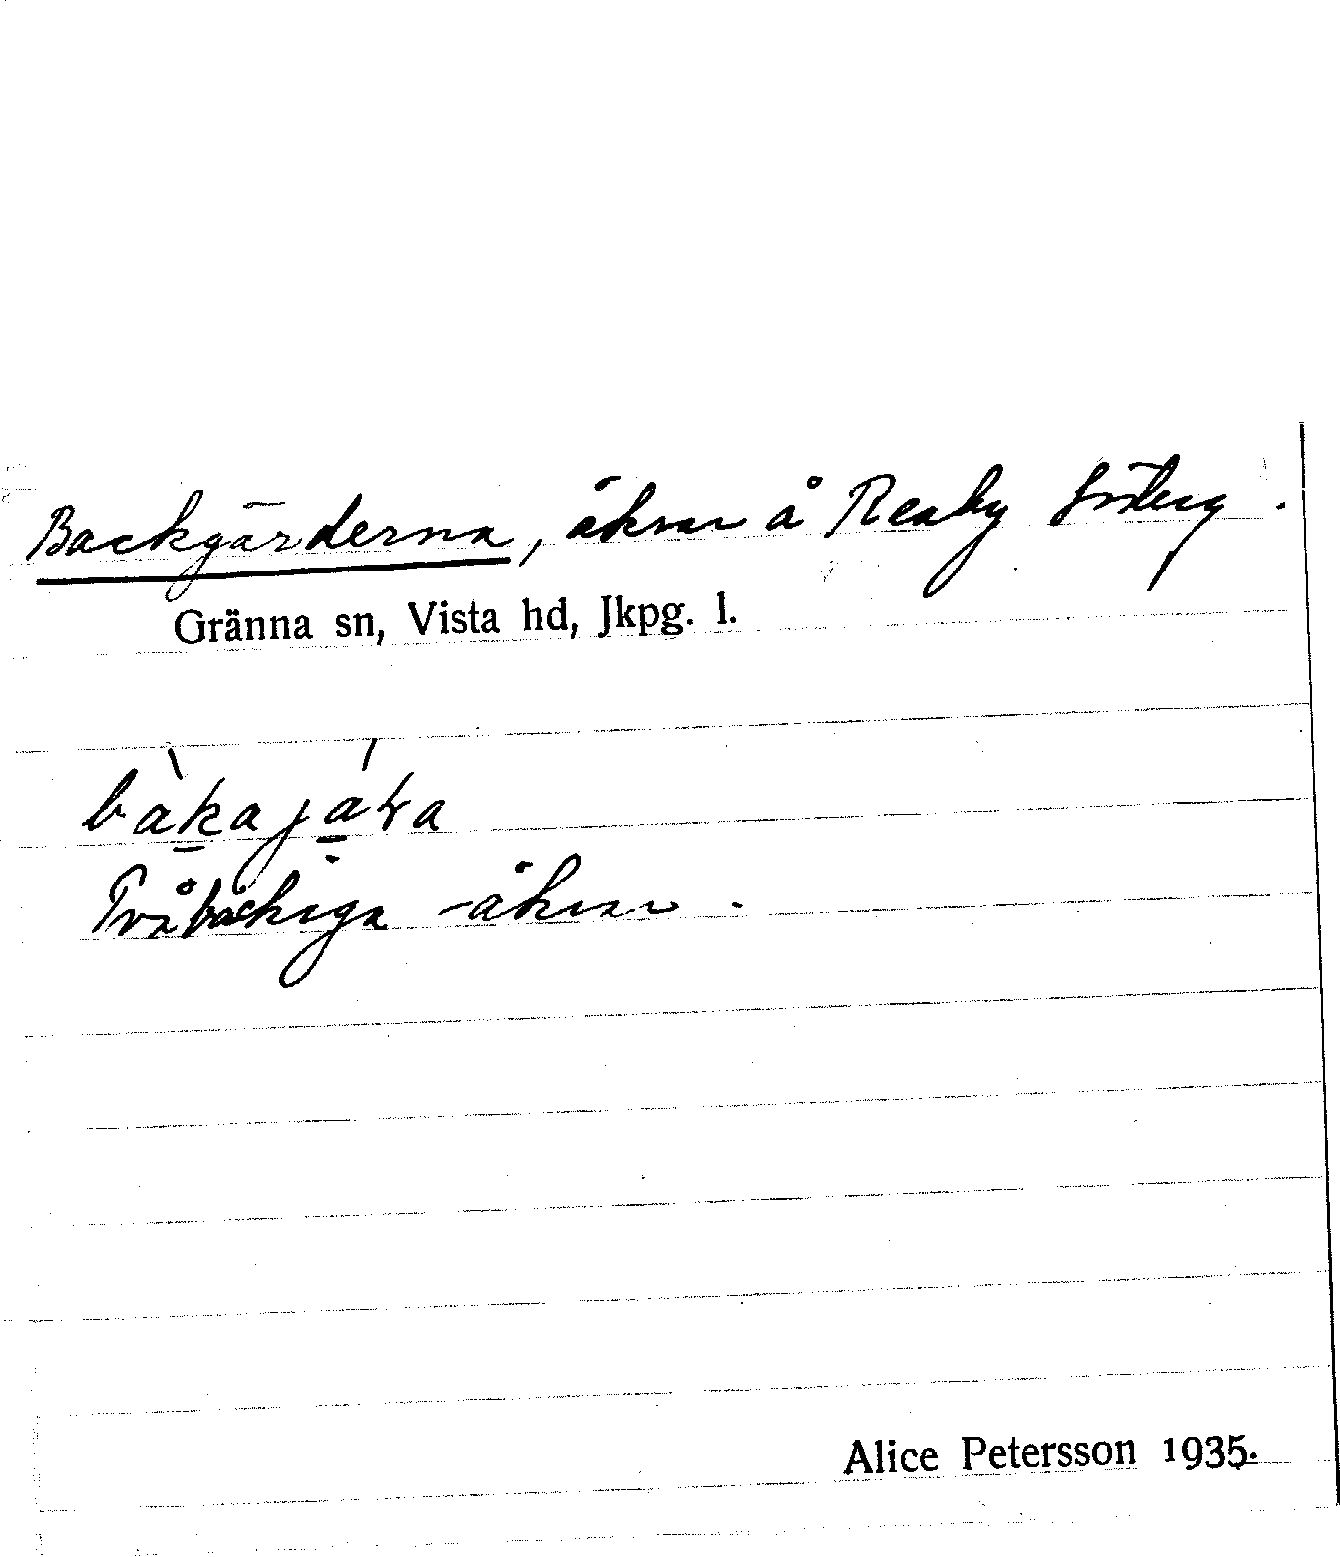 Backgärderna, åkrar å Reaby Söberg.
Gränna sn, Vista hd, Jkpg. l.
bakajära
Två backiga åkrar.
Alice Petersson 1935.